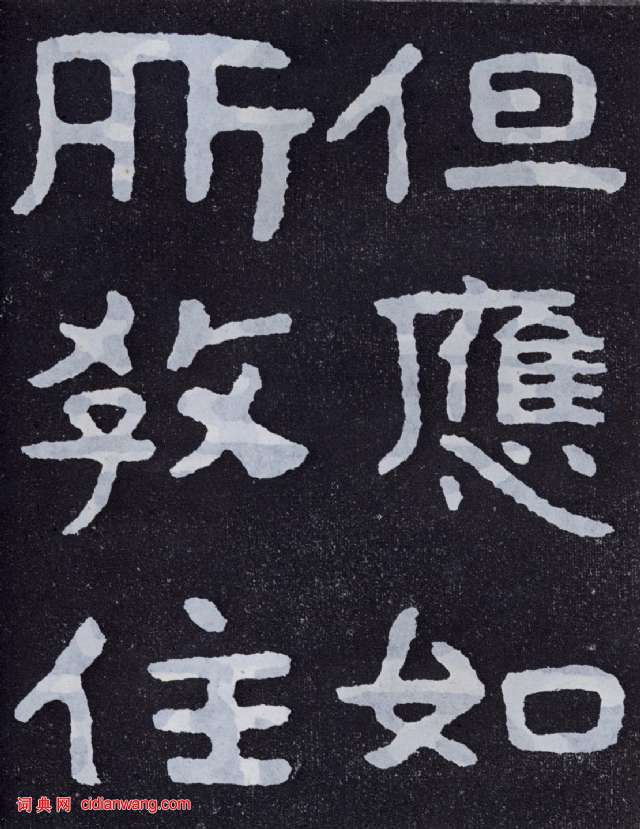 但應如
所教住
词典网 cidianwang.com